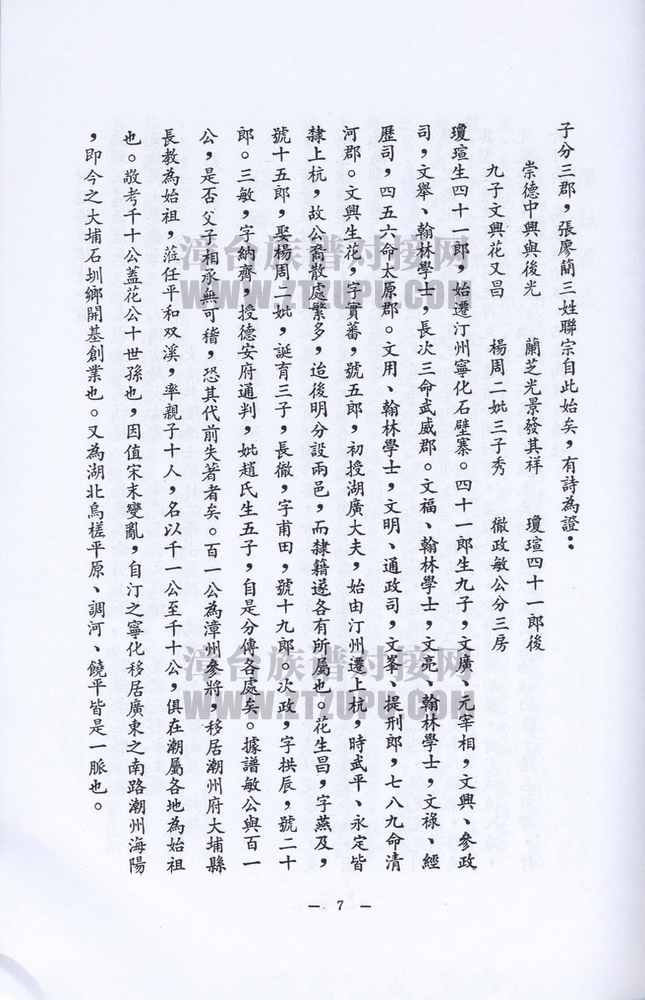 子分三郡，張廖簡三姓聯宗自此始矣，有詩為證：
崇德中興與後光　蘭芝光景發其祥　瓊瑄四十一郎後
九子文興花又昌　楊周二妣三子秀　徹政敏公分三房
瓊瑄生四十一郎，始遷汀州寧化石壁寨。四十一郎生九子，文廣、元宰相，文興、參政
司，文舉、翰林學士，長次三命武威郡。文福、翰林學士，文亮、翰林學士，文祿、經
歷司，四五六命太原郡。文用、翰林學士，文明、通政司，文峯、提刑郎，七八九命清
河郡。文興生花，字實蕃，號五郎，初授湖廣大夫，始由汀州遷上杭，時武平、永定皆
隸上杭，故公裔散處繁多，迨後明分設兩邑，而隸籍遂各有所屬也。花生昌，字燕及，
號十五郎，娶楊周二妣，誕育三子，長徹，字甫田，號十九郎。次政，字拱辰，號二十
郎。三敏，字納齋，授德安府通判，妣趙氏生五子，自是分傳各處矣。據譜敏公與百一
公，是否父子相承無可稽，恐其代前失著者矣。百一公為漳州參將，移居潮州府大埔縣
長教為始祖，蒞任平和双溪，率親子十人，名以千一公至千十公，俱在潮屬各地為始祖
也。敬考千十公蓋花公十世孫也，因值宋末變亂，自汀之寧化移居廣東之南路潮州海陽
，即今之大埔石圳鄉開基創業也。又為湖北烏槎平原、調河、饒平皆是一脈也。
— 7 —
漳台族谱对接网
WWW.ZTZUPU.COM
漳台族谱对接网
WWW.ZTZUPU.COM